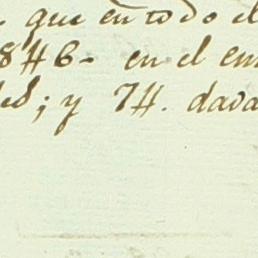 que en todo el
8#6- en el en
; y 7#. dava